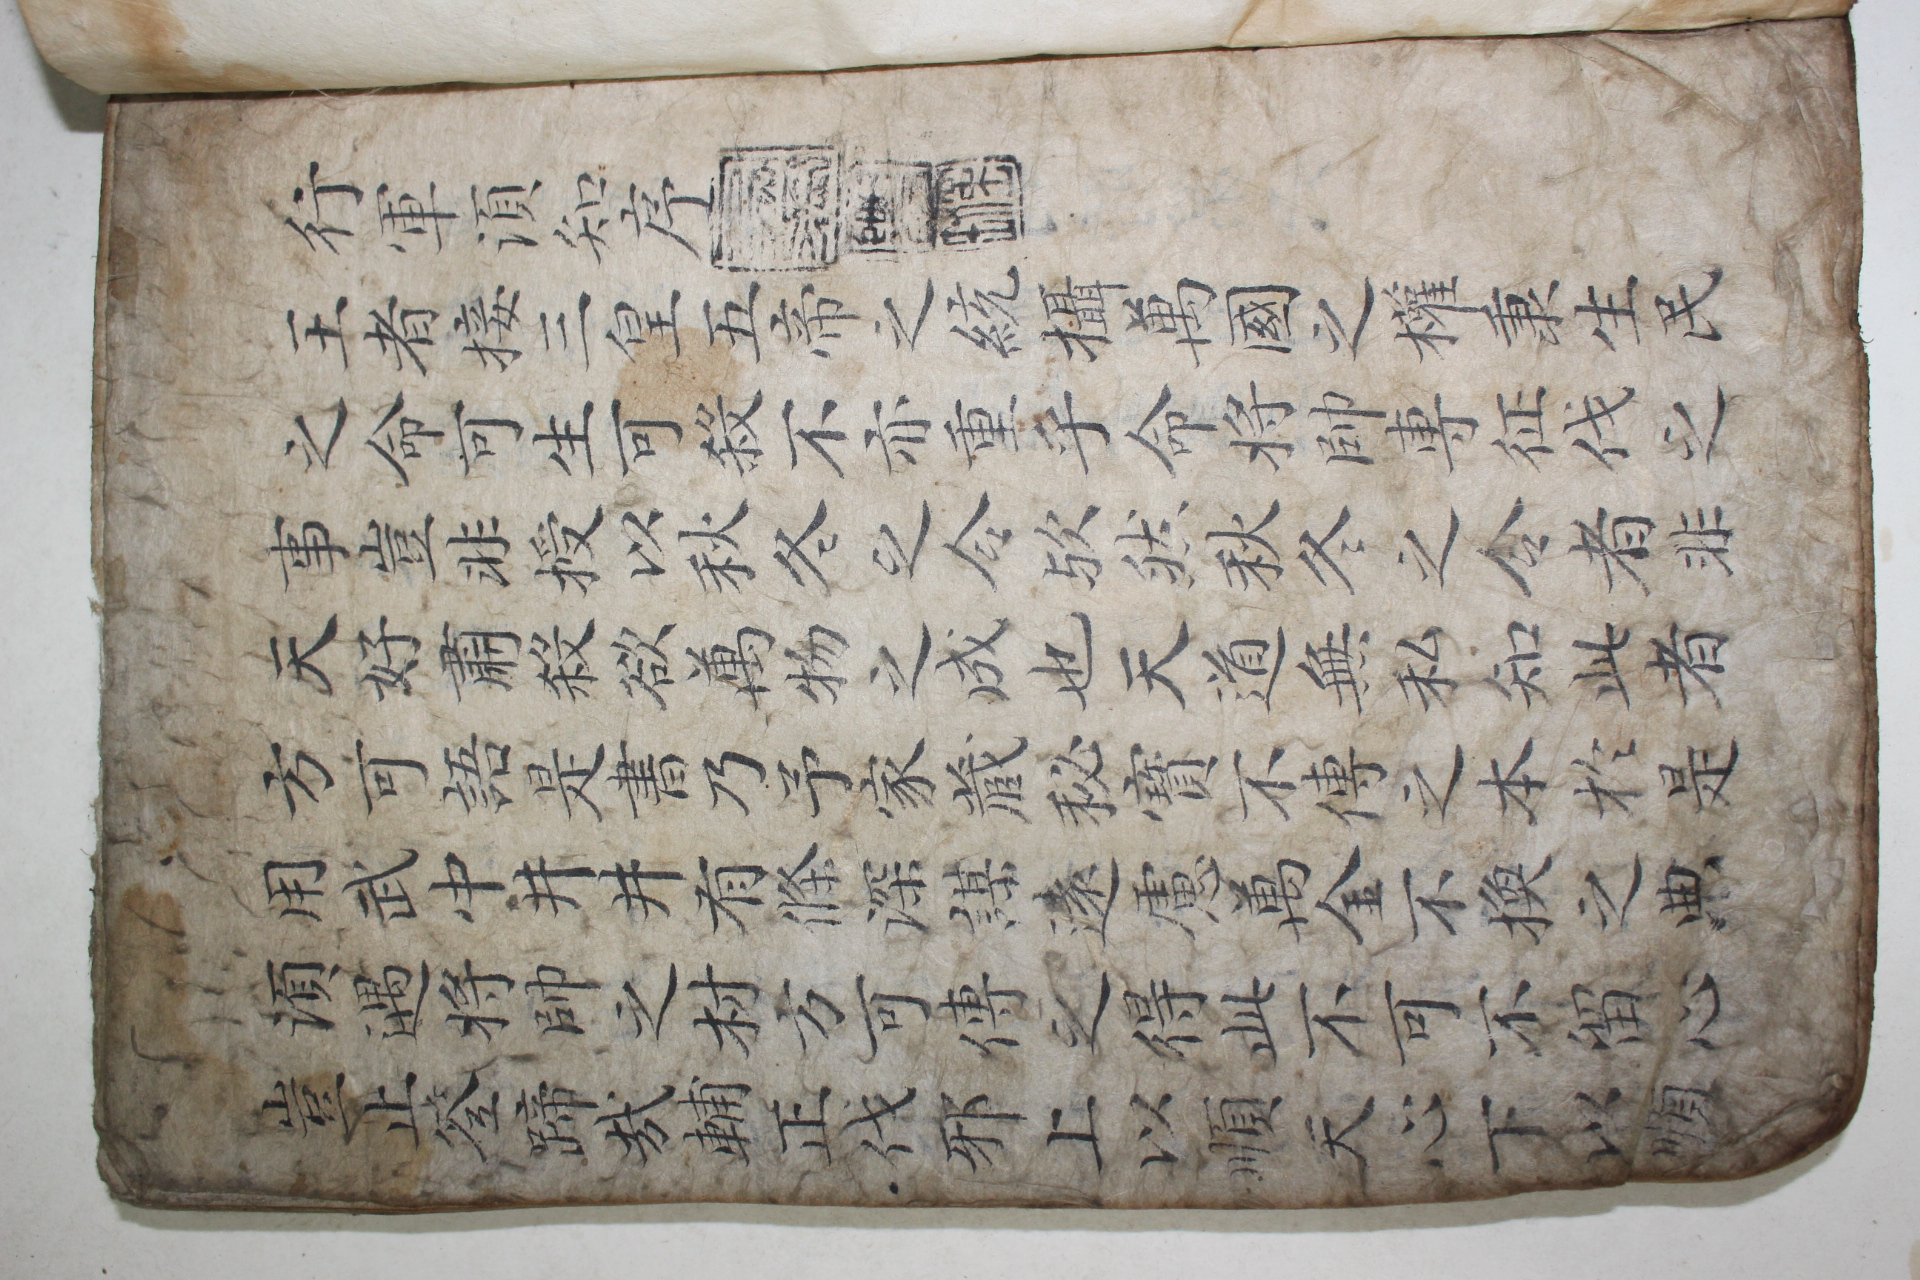 行軍須知序
王者接三皇五帝之統攝萬國之權秉生民
之命可生可殺不亦重乎命将帥専征伐之
事豈非授以秋冬之令欤然秋冬之令者非
天好肅殺欲萬物之成也天道無私知此者
方可語是書乃予家藏秘寶不傳之本於是
用武中井井有條深謀遠慮萬金不換之典
須遇将帥之材方可傳之得此不可不留心
豈止筌蹄㢤輔正伐邪上以順天心下以順